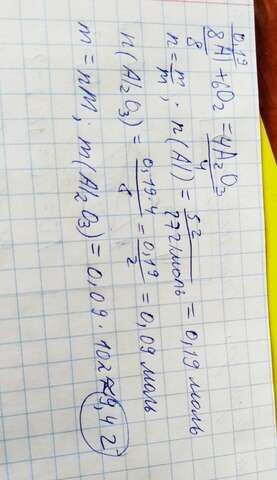 0,19
8Al + 6O2 = 4Al2O3
8 4
n = m/M ; n(Al) = 5г/27г/моль = 0,19 моль
n(Al2O3) = 0,19·4/8 = 0,19/2 = 0,09 моль
m = nM ; m(Al2O3) = 0,09·102 ≈ 9,4г